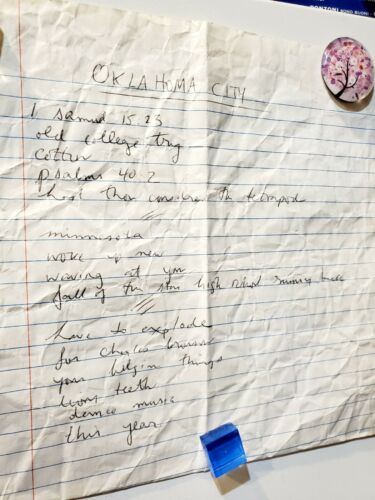 OKLAHOMA CITY
1 samuel 15 23
old college try
cotton
psalms 40 2
hast thou considered the tetrapod
minnesota
woke up new
waving at you
fall of the star high school running back
have to explode
for charles bronson
your belgian things
lions teeth
dance music
this year